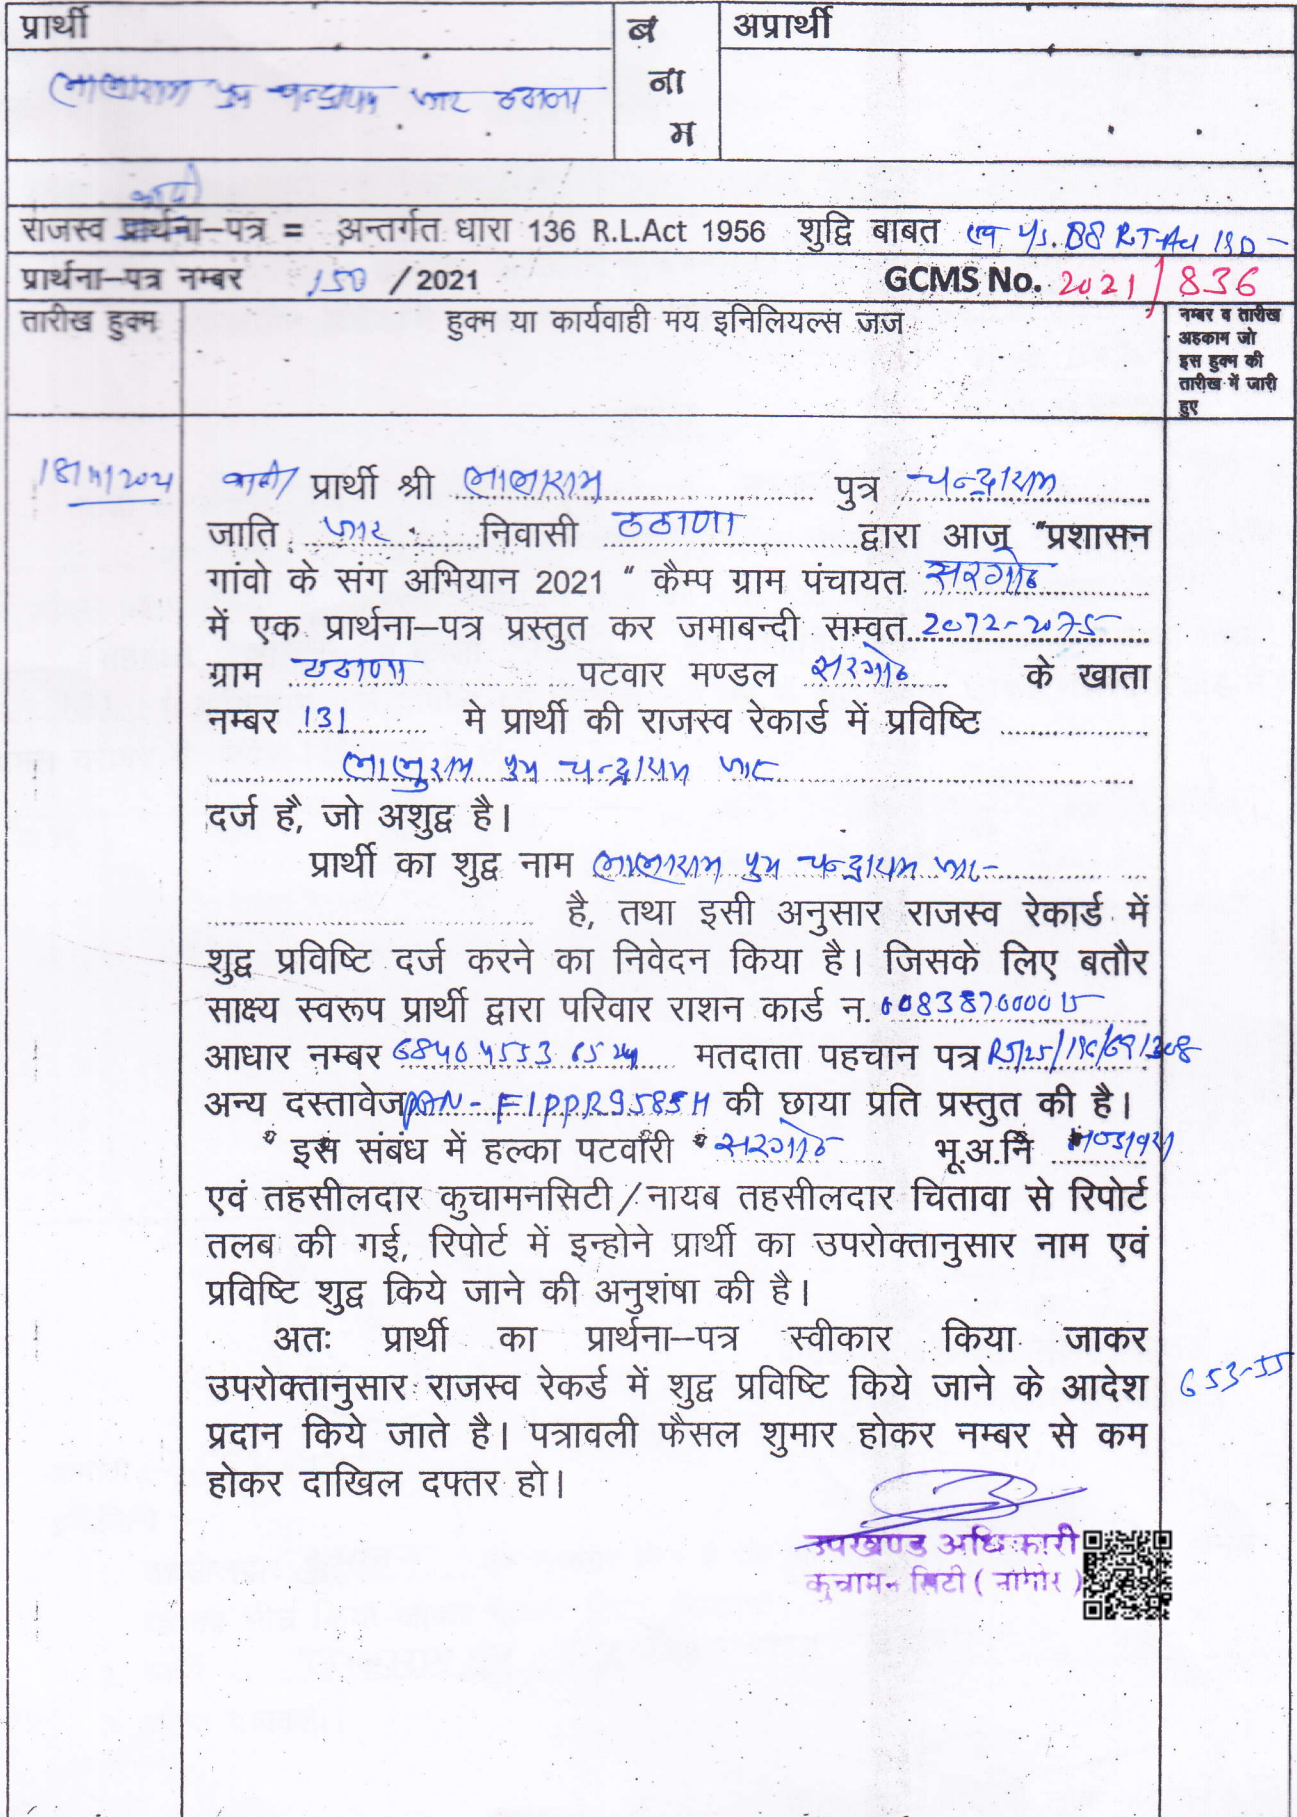 प्रार्थी
ब
ना
म
अप्रार्थी
लालाराम पुत्र चन्द्राराम जाट ठठाणा
राजस्व प्रार्थना–पत्र = अन्तर्गत धारा 136 R.L.Act 1956 शुद्वि बाबत 88 R.T.Act
प्रार्थना–पत्र नम्बर 150 / 2021 GCMS No. 2021/836
तारीख हुक्म
हुक्म या कार्यवाही मय इनिलियल्स जज
नम्बर व तारीख
अहकाम जो
इस हुक्म की
तारीख में जारी
हुए
प्रार्थी श्री लालाराम पुत्र चन्द्राराम
जाति जाट निवासी ठठाणा द्वारा आज "प्रशासन
गांवो के संग अभियान 2021 " कैम्प ग्राम पंचायत सरगोठ
में एक प्रार्थना–पत्र प्रस्तुत कर जमाबन्दी सम्वत 2072-2075
ग्राम ठठाणा पटवार मण्डल सरगोठ के खाता
नम्बर 131 मे प्रार्थी की राजस्व रेकार्ड में प्रविष्टि
लालुराम पुत्र चन्द्राराम जाट
दर्ज है, जो अशुद्व है।
प्रार्थी का शुद्व नाम लालाराम पुत्र चन्द्राराम जाट
है, तथा इसी अनुसार राजस्व रेकार्ड में
शुद्व प्रविष्टि दर्ज करने का निवेदन किया है। जिसके लिए बतौर
साक्ष्य स्वरूप प्रार्थी द्वारा परिवार राशन कार्ड न.
आधार नम्बर मतदाता पहचान पत्र
अन्य दस्तावेज PAN - FIPPR9585H की छाया प्रति प्रस्तुत की है।
इस संबंध में हल्का पटवारी सरगोठ भू.अ.नि
एवं तहसीलदार कुचामनसिटी/नायब तहसीलदार चितावा से रिपोर्ट
तलब की गई, रिपोर्ट में इन्होने प्रार्थी का उपरोक्तानुसार नाम एवं
प्रविष्टि शुद्व किये जाने की अनुशंषा की है।
अतः प्रार्थी का प्रार्थना–पत्र स्वीकार किया जाकर
उपरोक्तानुसार राजस्व रेकर्ड में शुद्व प्रविष्टि किये जाने के आदेश
प्रदान किये जाते है। पत्रावली फैसल शुमार होकर नम्बर से कम
होकर दाखिल दफ्तर हो।
उपखण्ड अधिकारी
कुचामन सिटी ( नागौर )